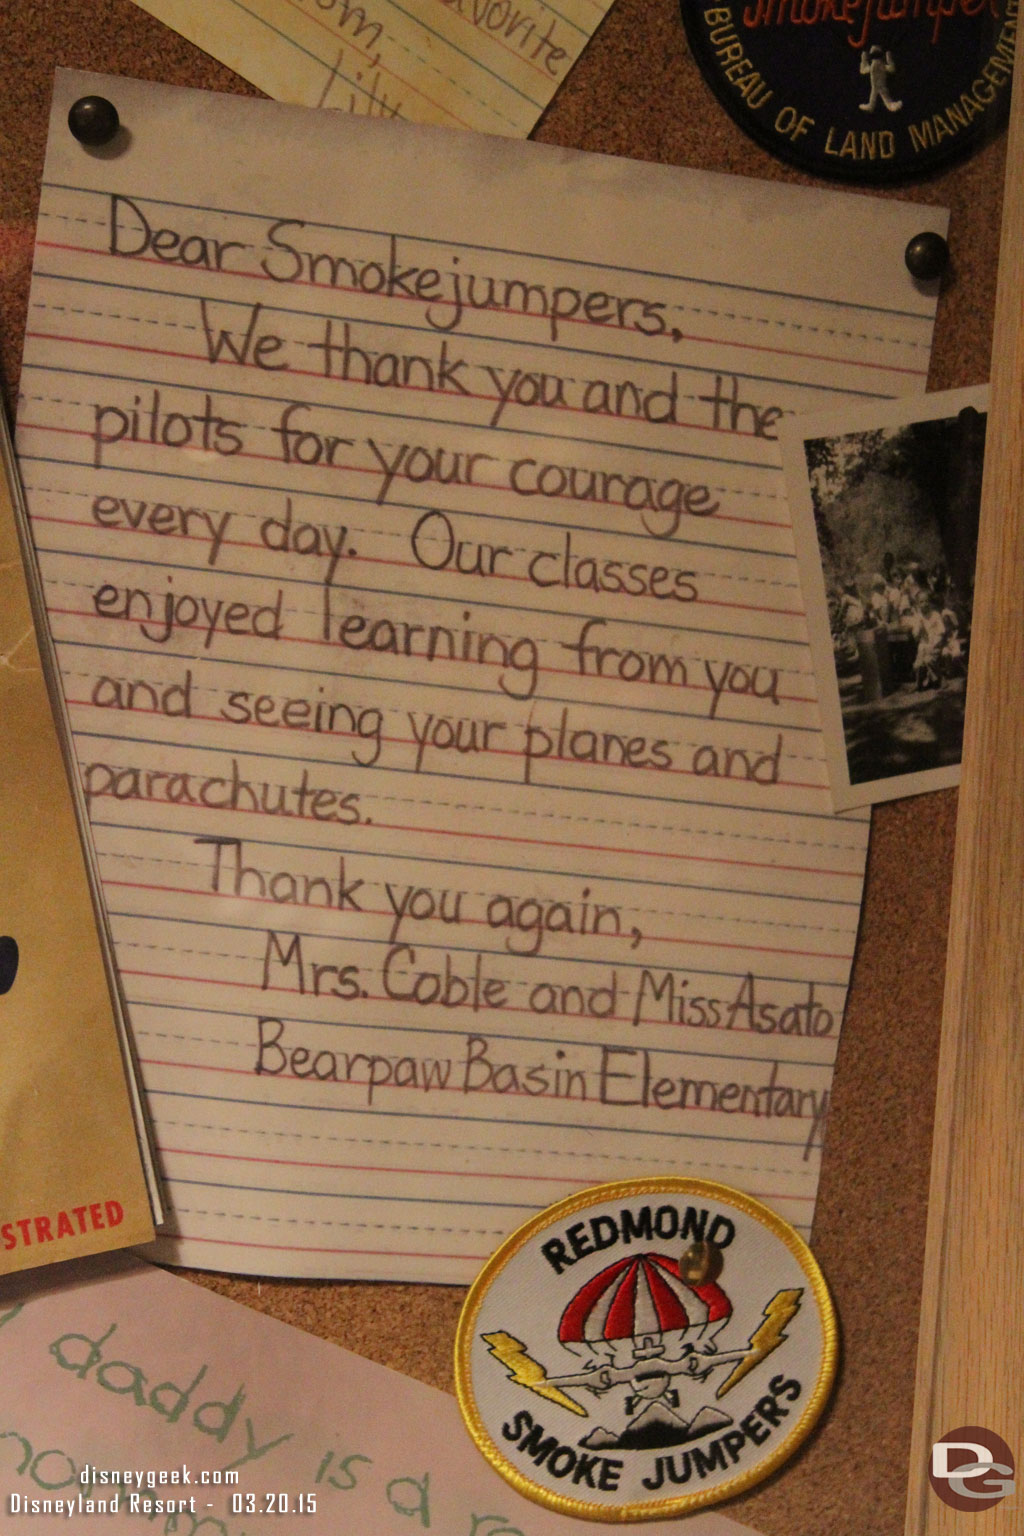 favorite
Lily
Smokejumper
BUREAU OF LAND MANAGEMENT
Dear Smokejumpers,
We thank you and the
pilots for your courage
every day. Our classes
enjoyed learning from you
and seeing your planes and
parachutes.
Thank you again,
Mrs. Coble and Miss Asato
Bearpaw Basin Elementary
STRATED
REDMOND
SMOKE JUMPERS
daddy is a
disneygeek.com
Disneyland Resort - 03.20.15
DG